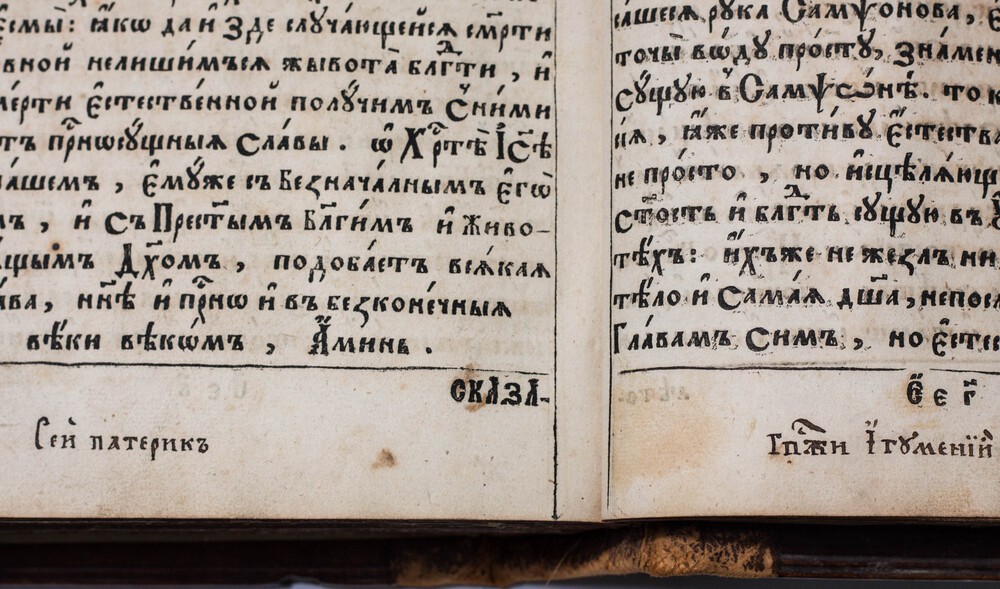 есмы: ꙗ҆́кѡ да и҆ Зде случа́ющейсѧ см҃рти
вной нелиши́мъсѧ жывота̀ бл҃гⷣти, и҆
ме́рти є҆сте́ственной полꙋ́чимъ с̾ни́ми
тъ прⷭ҇нѡсꙋ́щныѧ Сла́вы. ѡ҆ Хрⷭ҇тѣ̀ І҆с҃ѣ
на́шемъ, є҆мꙋ́же съ Безнача́лнымъ є҆гѡ̀
мъ, и҆ съ Прест҃ымъ Бл҃ги́мъ и҆ Живо-
щымъ Дх҃омъ, подоба́етъ всѧ́каѧ
а́ва, нн҃ѣ и҆ прⷭ҇нѡ и҆ въ безконе́чныѧ
вѣ́ки вѣкѡ́мъ, А҆ми́нь.
СКАЗА-
Сей патерикъ
рꙋка Самѱонова,
точы̀ во́дꙋ про́стꙋ, Зна́мен
сꙋ́щꙋю в̾ Самѱѡ́нѣ. то
ꙗ҆́же проти́вꙋ є҆стества
не про́сто, но и҆сцѣлѧ́ющ
ст҃ость и҆ бл҃гⷣть сꙋщꙋю въ
тѣ́хъ: и҆́хъже не жезлъ ни
тѣ́ло и҆ Сама́ѧ дш҃а, непос
Гла́вамъ Симъ, но є҆сте
Є҆ е г҃
Гпⷭ҇жи І҆гꙋменїй